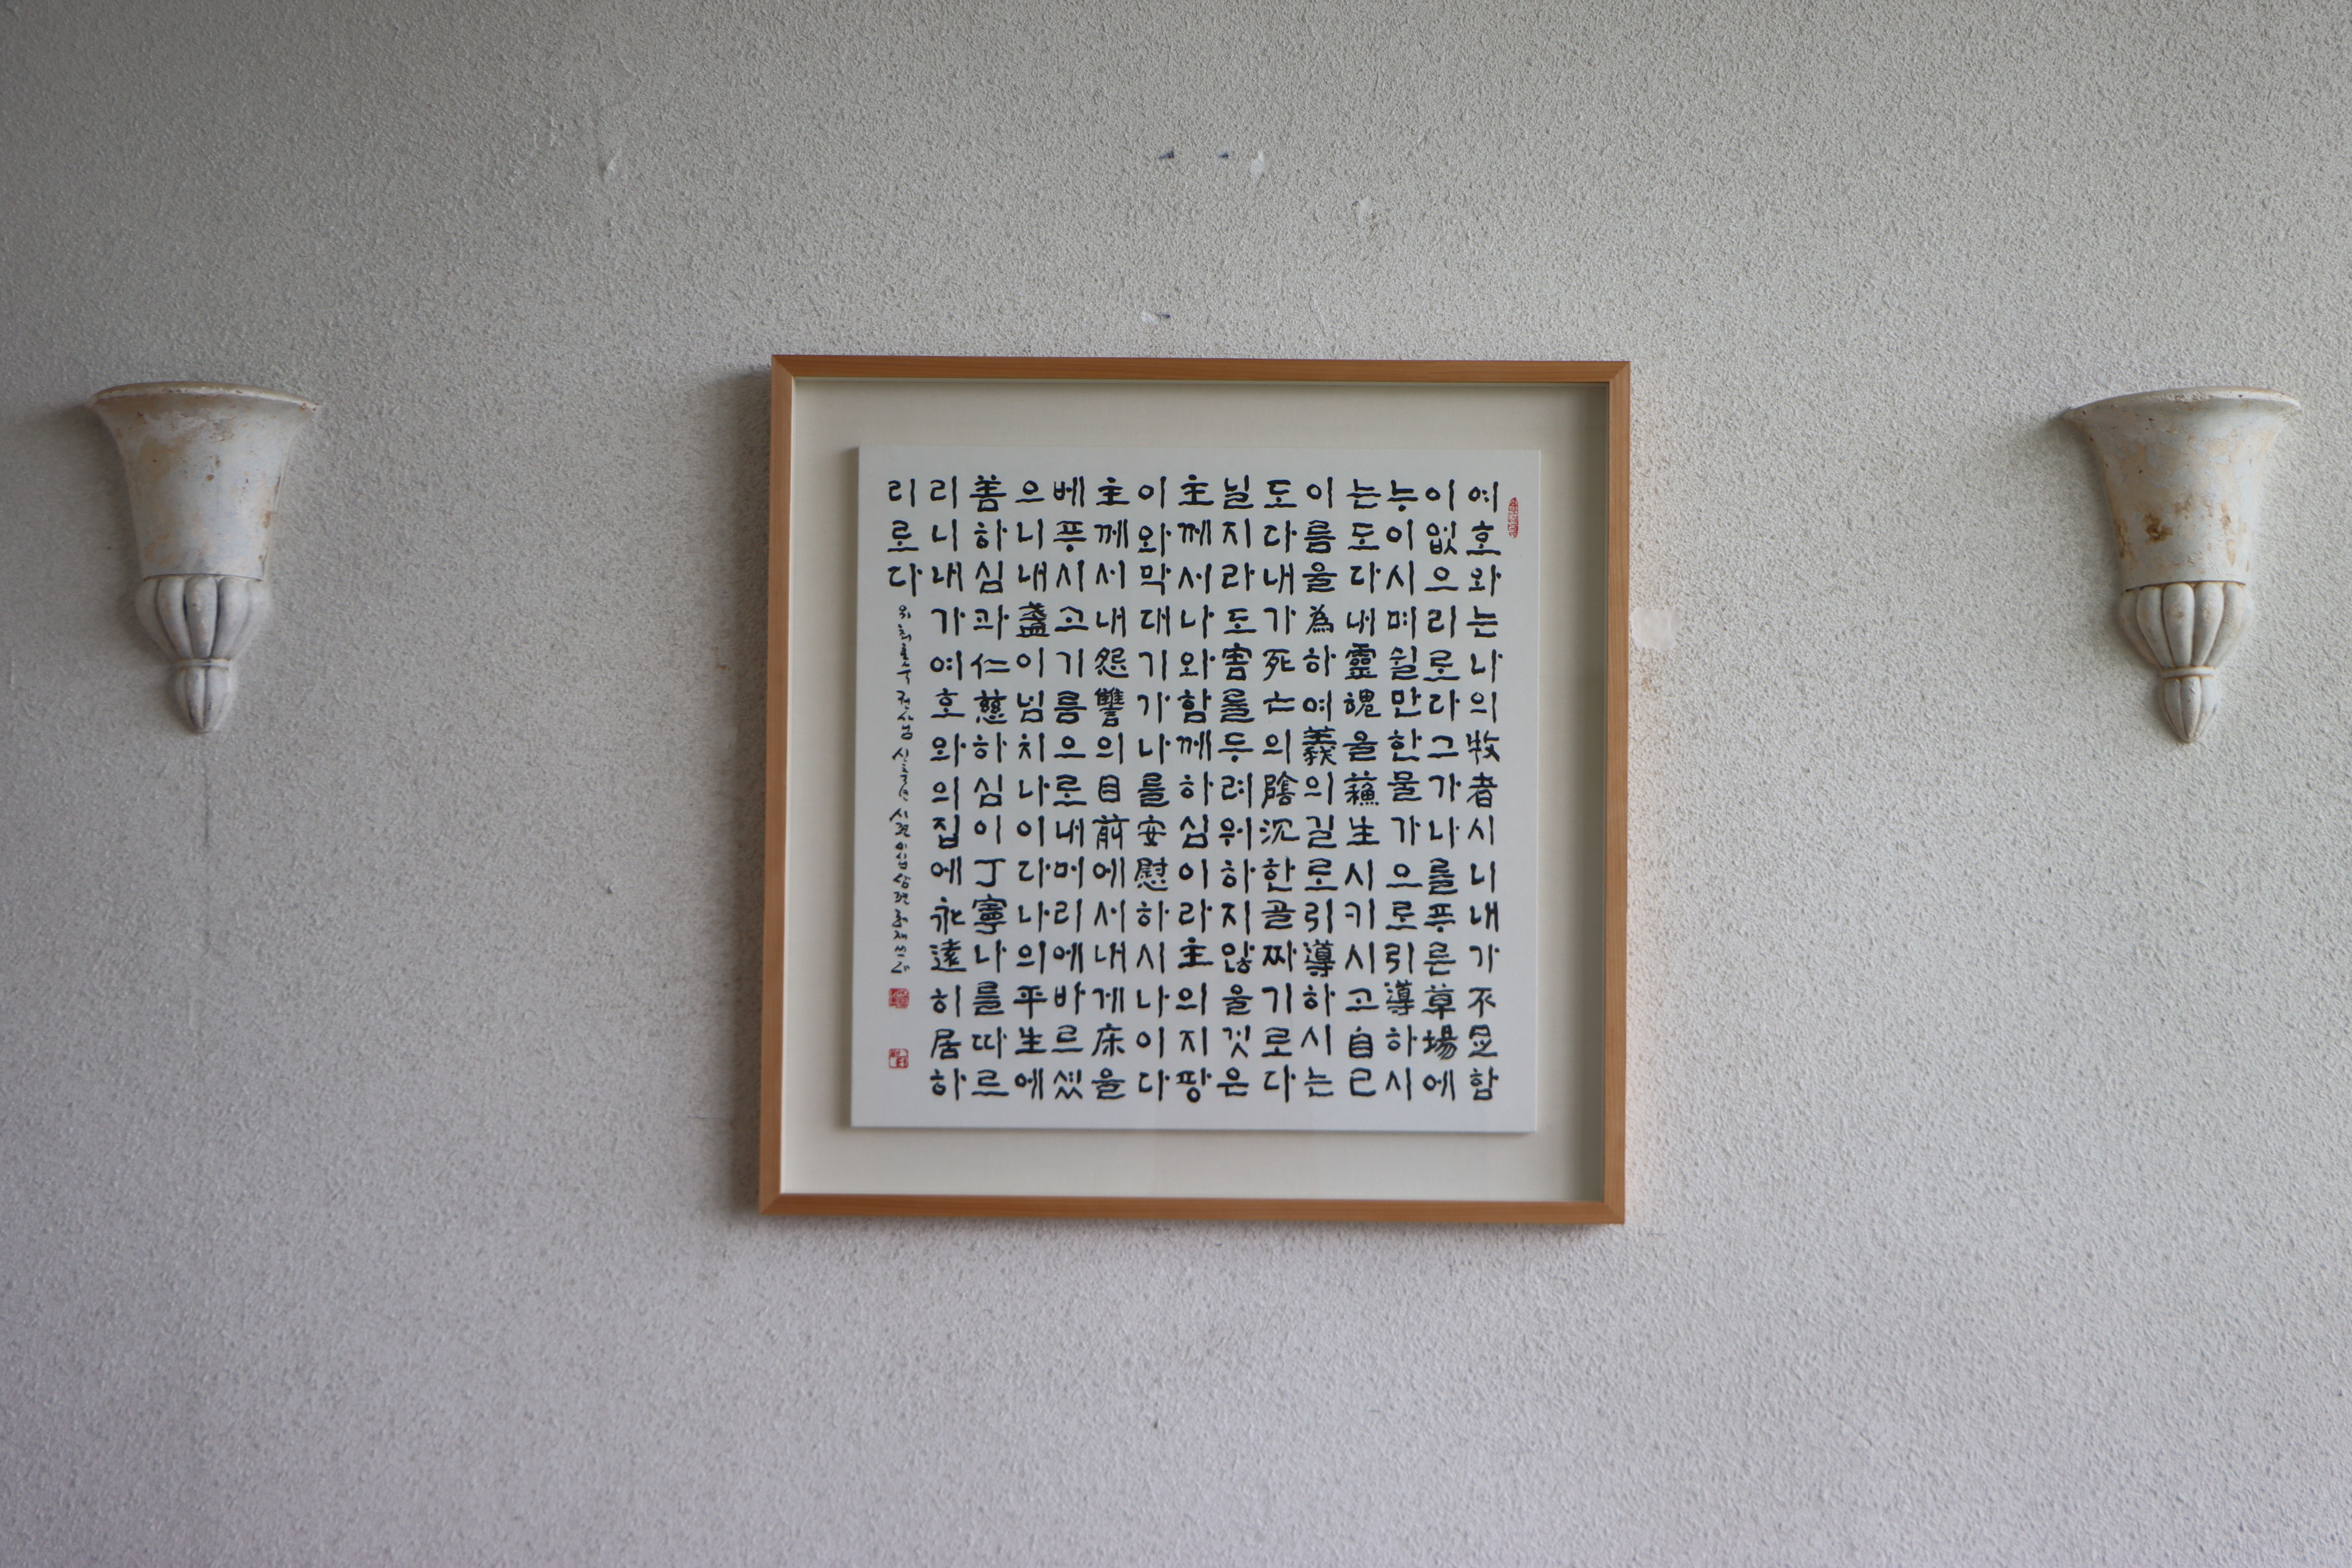 여호와는나의牧者시니내가不足함
이없으리로라그가나를푸른草場에
누이시며쉴만한물가으로引導하시
는도다내靈魂을蘇生시키시고自己
이름을為하여義의길로引導하시는
도다내가死亡의陰沈한골짜기로다
닐지라도害를두려워하지않을것은
主께서나와함께하심이라主의지팡
이와막대기가나를安慰하시나이다
主께서내怨讐의目前에서내게床을
베푸시고기름으로내머리에바르셨
으니내盞이넘치나이다나의平生에
善하심과仁慈하심이丁寧나를따르
리니내가여호와의집에永遠히居하
리로다
신축년 시편이십삼편